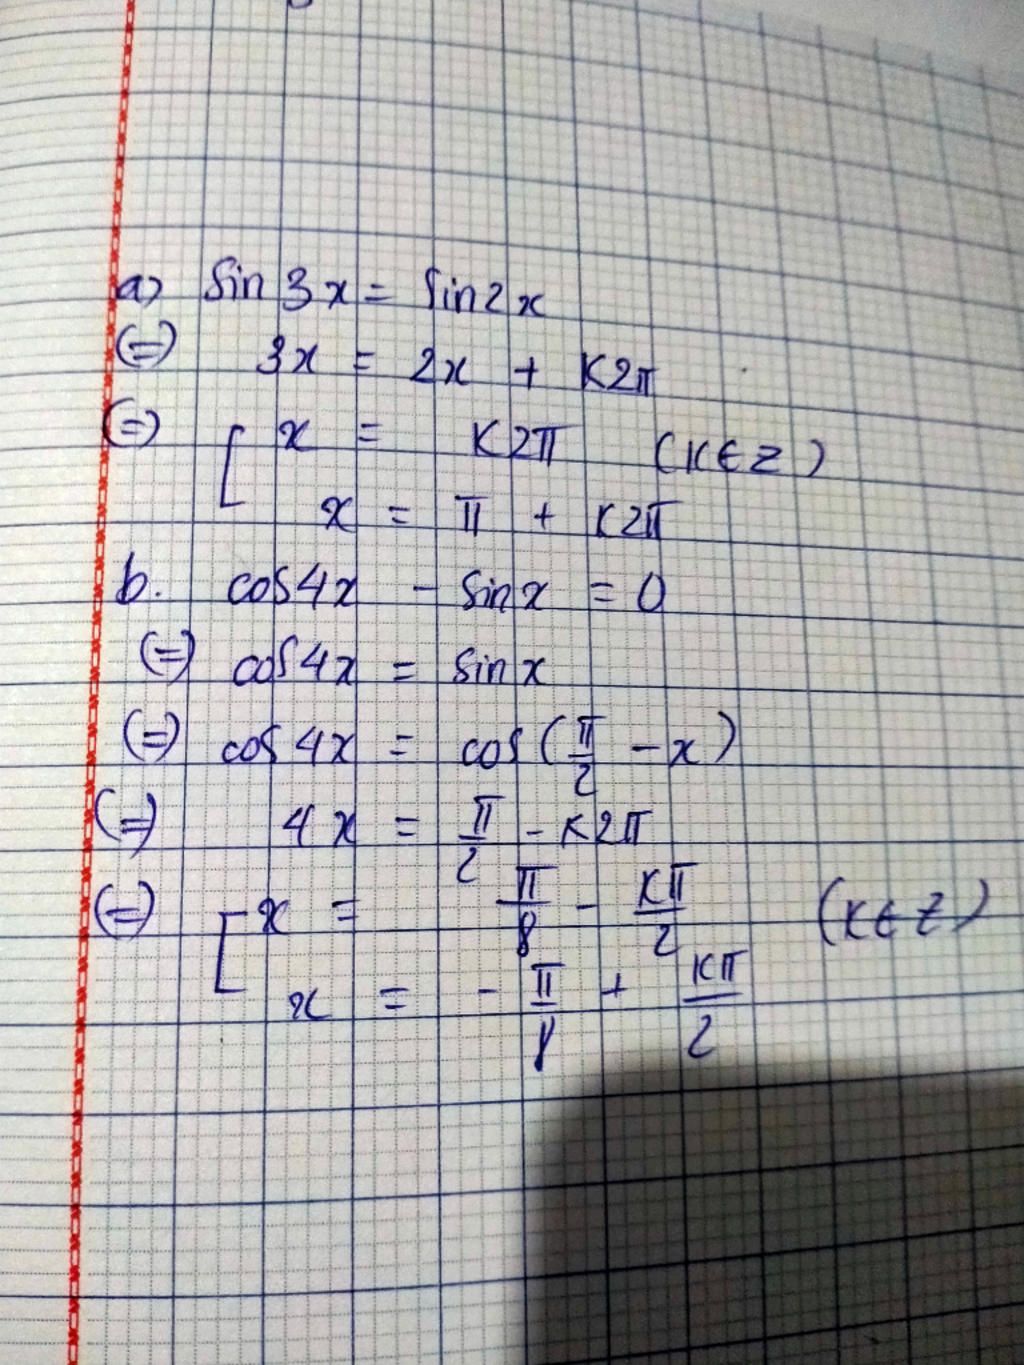 a) sin 3x = sin 2x
(=) 3x = 2x + K2π
(=) [ x = K2π (K∈Z)
x = π + K2π
b. cos4x - sinx = 0
(=) cos4x = sinx
(=) cos4x = cos(π/2 - x)
(=) 4x = π/2 - K2π
(=) [ x = π/8 - Kπ/2 (K∈Z)
x = - π/8 + Kπ/2